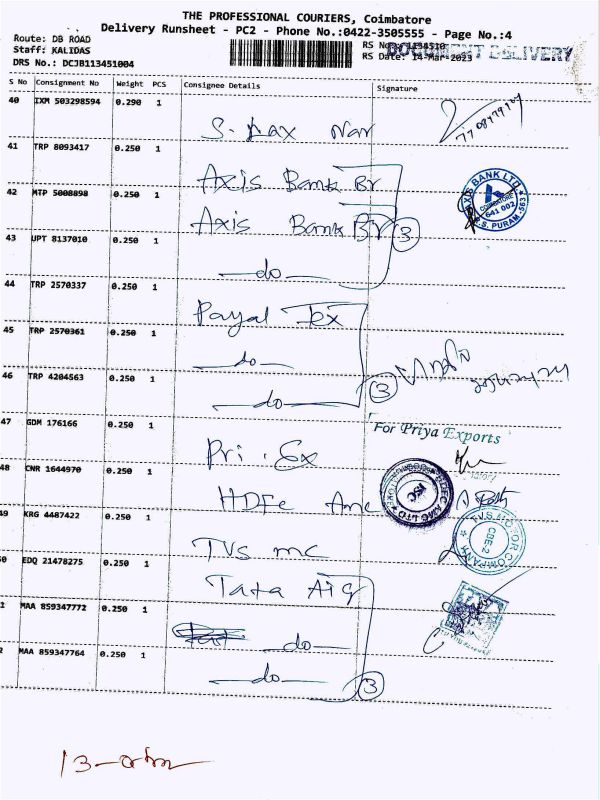 THE PROFESSIONAL COURIERS, Coimbatore
Delivery Runsheet - PC2 - Phone No.:0422-3505555 - Page No.:4
Route: DB ROAD
Staff: KALIDAS
DRS No.: DCJB113451004
RS No.: 1134510
RS Date: 14-Mar-2023
DOCUMENT DELIVERY
S No Consignment No Weight PCS Consignee Details Signature
40 IXM 503298594 0.290 1
41 TRP 8093417 0.250 1 Axis Bank Br
42 MTP 5008898 0.250 1 Axis Bank Br
43 UPT 8137010 0.250 1 —do—
3
AXIS BANK LTD
COIMBATORE
641 002
R.S. PURAM
44 TRP 2570337 0.250 1 Payal Tex
45 TRP 2570361 0.250 1 —do—
46 TRP 4204563 0.250 1 —do—
3
47 GDM 176166 0.250 1 Pri. Ex
For Priya Exports
48 CNR 1644970 0.250 1 HDFC Amc
HDFC AMC LTD
ISC
49 KRG 4487422 0.250 1 TVS mc
T.V.S. MOTOR COMPANY
CBE-2
EDQ 21478275 0.250 1 Tata Aig
MAA 859347772 0.250 1 —do—
MAA 859347764 0.250 1 —do—
3